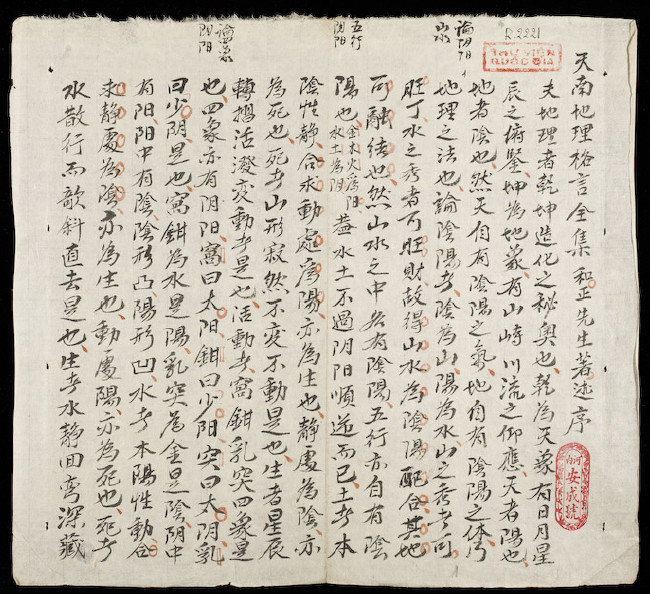 R.2221
THƯ VIỆN
QUỐC GIA
天南地理格言全集和正先生著述序
夫地理者乾坤造化之秘奧也乾為天象有日月星
辰之俯鑒坤為地象有山峙川流之仰應天者陽也
論阴阳
山水
地者陰也然天自有陰陽之氣地自有陰陽之体乃
地理之法也論陰陽者陰為山陽為水山之秀者可
旺丁水之秀者可旺財故得山水為陰陽配合其地
五行
阴阳
可融結也然山水之中各有陰陽五行亦自有陰
陽也金木火為阳水土為阴盖水土不過阴阳順逆而已土者本
陰性静合求動處為陽亦為生也静處為陰亦
為死也死者山形寂然不变不動是也生者星辰
轉摺活潑变動者是也活動者窩鉗乳突四象是
論四象
阴阳
也四象亦有阴阳窩曰太阳鉗曰少阳突曰太阴乳
曰少阴是也窩鉗為水是陽乳突為金是陰阴中
有阳阳中有陰陰形凸陽形凹水者本陽性動合
求静處為陰亦為生也動處陽亦為死也死者
水散行而欹斜直去是也生者水静回弯深藏
安成號